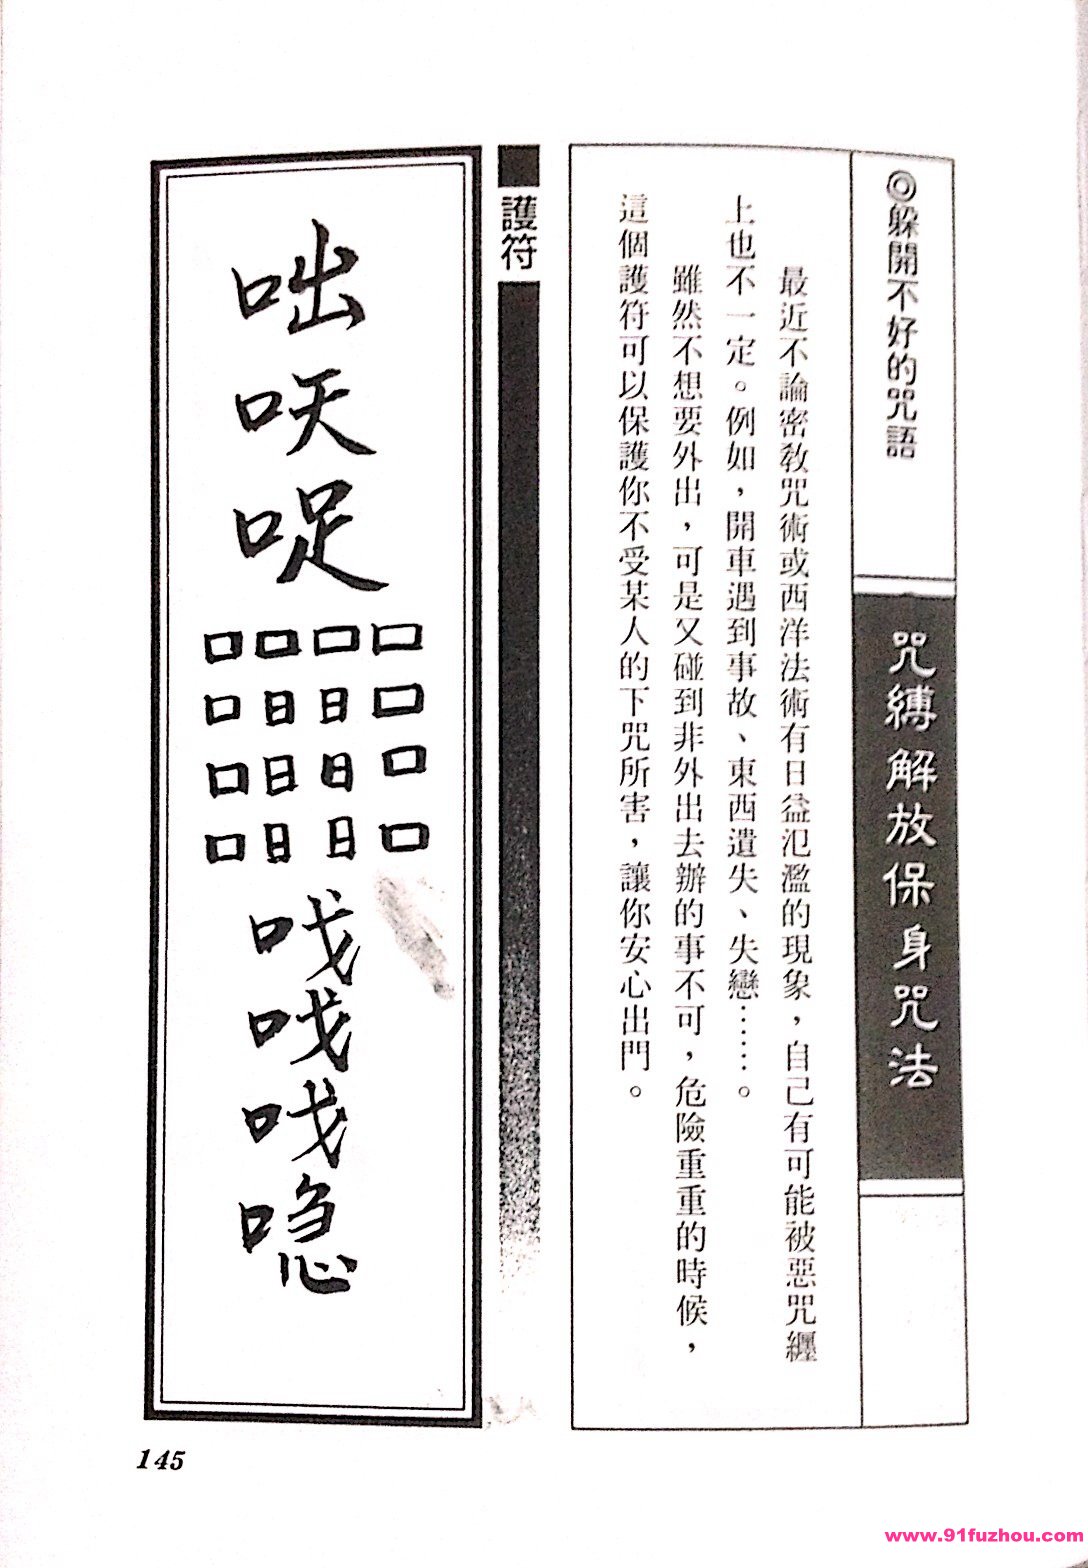 ◎躲開不好的咒語
咒縛解放保身咒法
最近不論密教咒術或西洋法術有日益氾濫的現象，自己有可能被惡咒纏
上也不一定。例如，開車遇到事故、東西遺失、失戀……。
雖然不想要外出，可是又碰到非外出去辦的事不可，危險重重的時候，
這個護符可以保護你不受某人的下咒所害，讓你安心出門。
護符
咄
呋
哫
口口口口
口日日口
口日日口
口日日口
145
www.91fuzhou.com